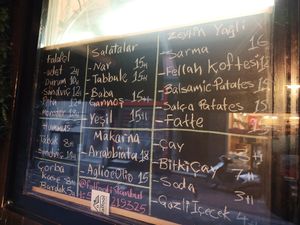 Falafel
Adet 2₺
Durum 10₺
Sandviç 12₺
Pita
Humus
Tabak 8₺
Sandviç
Çorba
Kase 8₺
Bardak 5₺
Salatalar
-Nar 15₺
-Tabbule 15₺
-Baba
Gannoş 15₺
-Yeşil 15₺
Makarna
-Arrabbiata 18
-Aglio e Olio 15
Zeytin Yağlı
-Sarma 16
-Fellah Köftesi 12
-Balsamic Patates
-Salça Patates 15
-Fatte
-Çay
-Bitki Çay 7₺
-Soda
-Gazlı İçecek